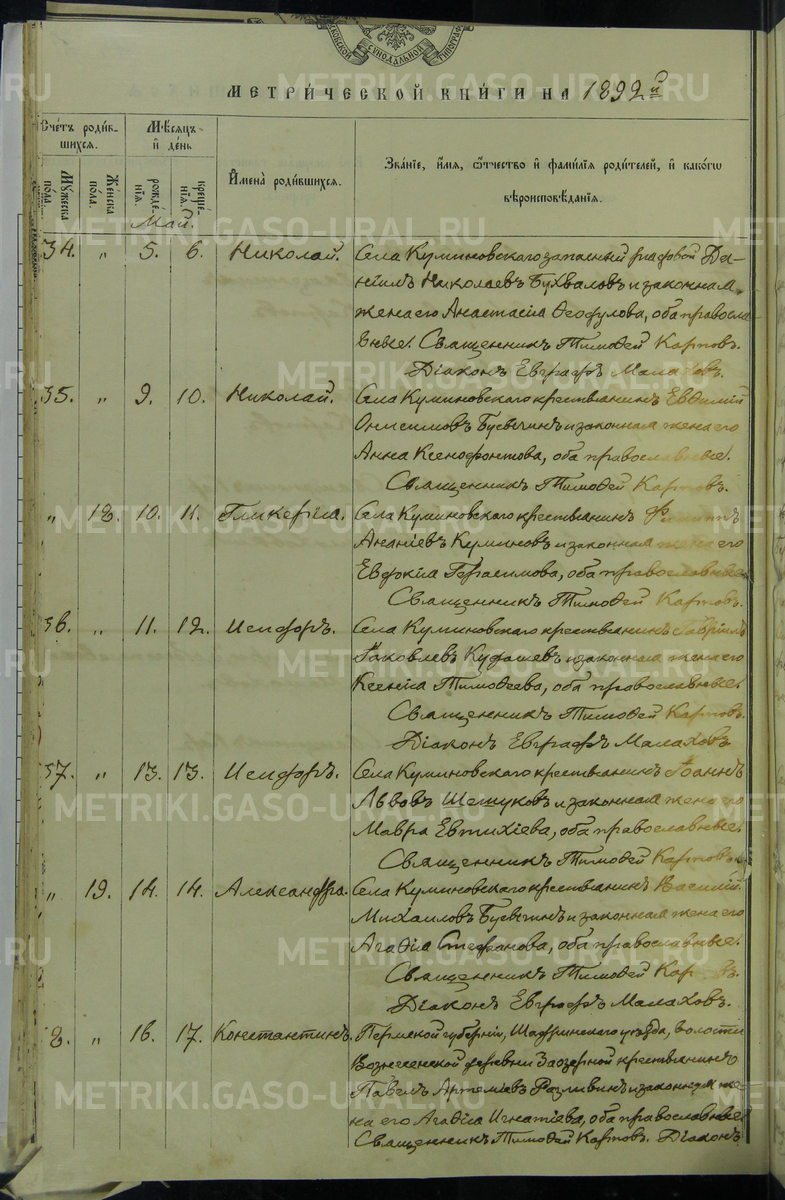 МЕТРИ́ЧЕСКОЙ КНИ́ГИ НА 1892й
Счётъ роди́вшихся.
Мѣсяцъ и день
Имена̀ роди́вшихся.
Зва́нїе, и́мя, ѻ҆́тчество и фами́лїѧ роди́телей, и како́гѡ вѣроисповѣ́данїѧ.
Му́жеска по́ла.
Же́нска по́ла.
рожде́нїѧ.
креще́нїѧ.
Май.
34. „ 5. 6. Николай. Села Куминовскаго запасный рядовой Да-
ніилъ Николаевъ Бухваловъ и законная
жена его Анастасія Ѳеофулова, оба правосла
вные. Священникъ Тимоѳей Карповъ.
Діаконъ Евграфъ Малаховъ.
35. „ 9. 10. Николай. Села Куминовскаго крестьянинъ Евѳимій
Онисимовъ Бусыгинъ и законная жена его
Анна Ксенофонтова, оба православные.
Священникъ Тимоѳей Карповъ.
„ 18. 10. 11. Гликерія. Села Куминовскаго крестьянинъ Филиппъ
Ананіевъ Куминовъ и законная жена его
Евфкія Герасимова, оба православные.
Священникъ Тимоѳей Карповъ.
36. „ 11. 12. Исидоръ. Села Куминовскаго крестьянинъ Гавріилъ
Іаковлевъ Кудашевъ и законная жена его
Ксенія Тимоѳеева, оба православные.
Священникъ Тимоѳей Карповъ.
Діаконъ Евграфъ Малаховъ
37. „ 13. 13. Исидоръ. Села Куминовскаго крестьянинъ Іоаннъ
Львовъ Шешуковъ и законная жена его
Мавра Евтихіева, оба православные.
Священникъ Тимоѳей Карповъ.
„ 19. 14. 14. Александра. Села Куминовскаго крестьянинъ Василій
Михаиловъ Бусыгинъ и законная жена его
Агафія Стефанова, оба православные.
Священникъ Тимоѳей Карповъ.
Діаконъ Евграфъ Малаховъ.
8. „ 16. 17. Константинъ. Пермской губерніи, Шадринскаго уѣзда, волости
Вознесенской деревни Заозерной крестьянинъ
Павелъ Артеміевъ Разливинъ и законная же-
на его Агафія Игнатіева, оба православные
Священникъ Тимоѳей Карповъ. Діаконъ
METRIKI.GASO-URAL.RU